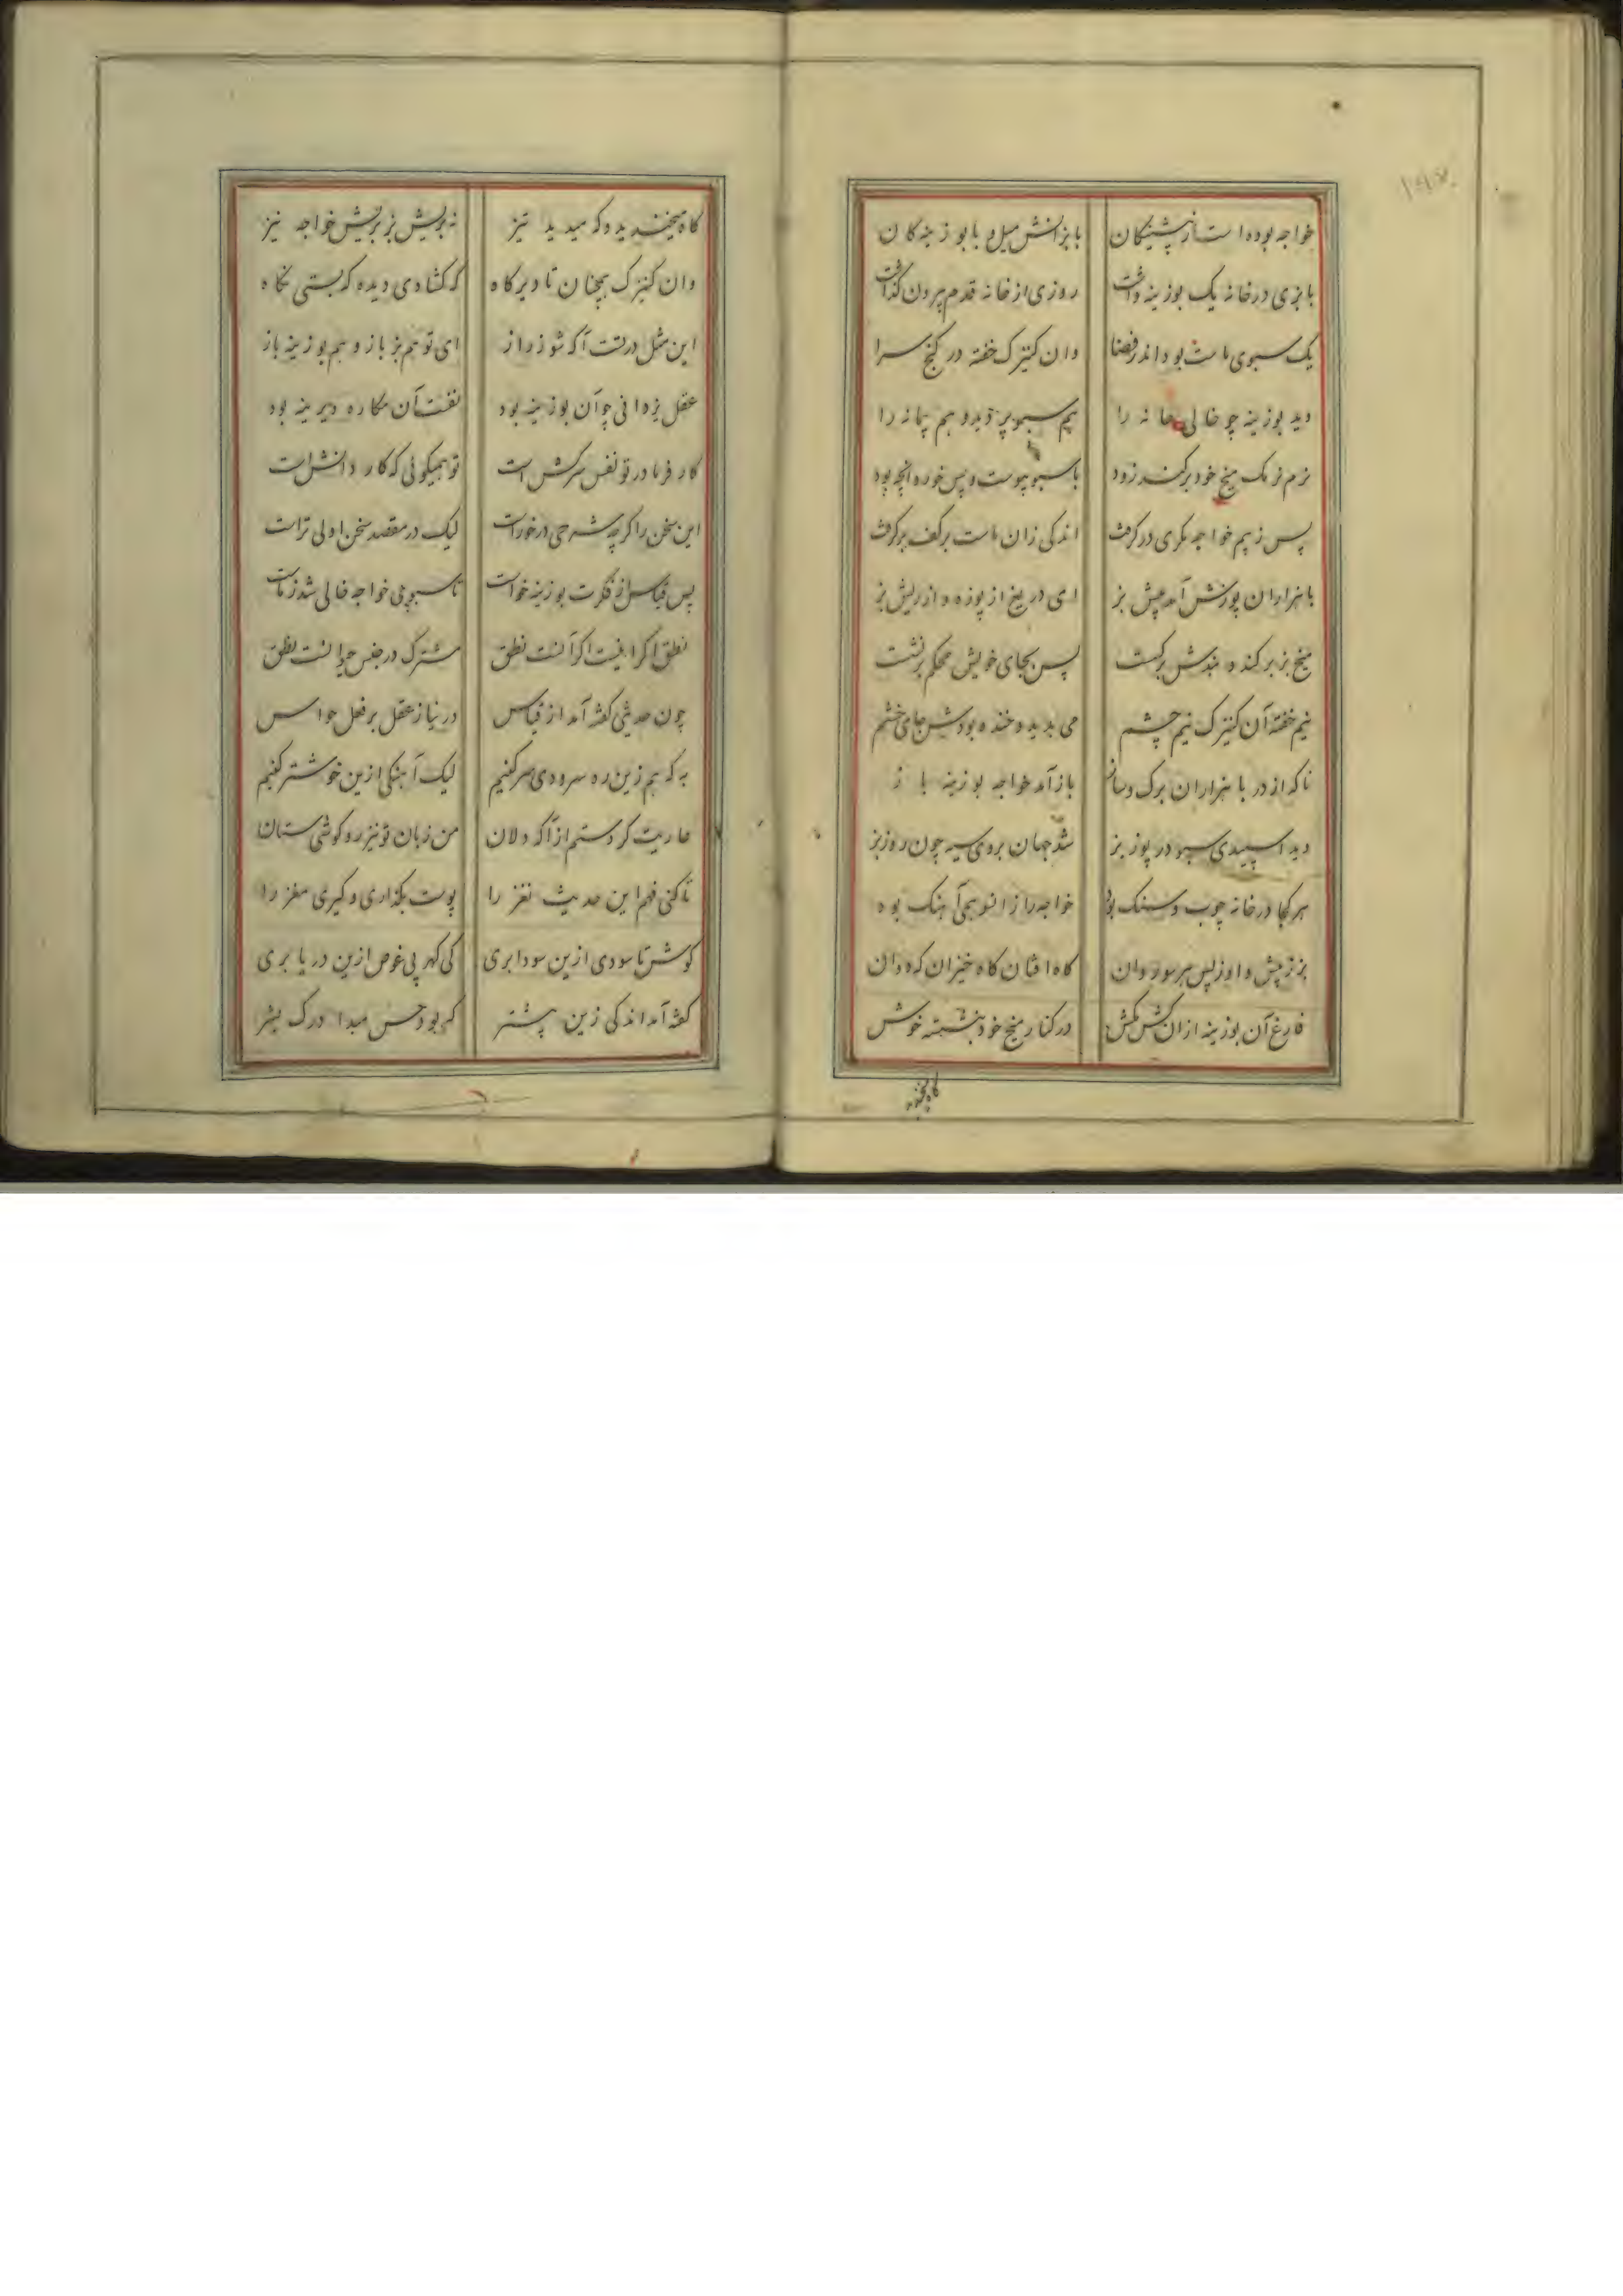 خواجه بوده است از پیشینگان با بزانش میل و با بوزینه کان
با بزی در خانه یک بوزینه داشت روزی از خانه قدم بیرون گذاشت
یک سبوی ماست بود اندر فضا وان کنیزک خفته در کنج سرا
دید بوزینه چو خالی خانه را هم سبو پر دید و هم پیمانه را
نرم نرمک میخ خود برکند زود با سبو پیوست و پس خورد آنچه بود
پس ز بیم خواجه مکری در گرفت اندکی زان ماست بر کف برگرفت
با هزاران پوزش آمد پیش بز ای دریغ از پوزه و از ریش بز
میخ بز برکند و بندش برگسست پس بجای خویش محکم برنشست
نیم خفته آن کنیزک نیم چشم می بدید و خنده بودش جای خشم
ناکه از در با هزاران برک و ساز باز آمد خواجه بوزینه باز
دید اسپیدی سبو در پوز بز شد جهان بر وی سیه چون روز بز
هر کجا در خانه چوب و سنک بود خواجه را زانسو همی آهنک بود
بز ز پیش و او ز پس هر سو روان کاه افتان کاه خیزان که دوان
فارغ آن بوزینه از ان کش مکش در کنار میخ خود بنشسته خوش
کاه میخندید
کاه میخندید و که میدید تیز نه بریش بز بریش خواجه نیز
وان کنیزک همچنان تا دیر کاه که کشادی دیده که بستی نکاه
این مثل در تست آکه شو ز راز ای تو هم بز باز و هم بوزینه باز
عقل بز دانی چو آن بوزینه بود نفست آن مکاره دیرینه بود
کار فرما در تو نفس سرکش است تو همیکوئی که کار دانش است
این سخن را کرچه شرحی در خورست لیک در مقصد سخن اولی ترست
پس قیاس از فکرت بوزینه خواست تا سبوی خواجه خالی شد ز ماست
نطق اکر اینست اکر آنست نطق مشترک در جنس حیوانست نطق
چون حدیثی کفته آمد از قیاس در نیاز عقل بر فعل حواس
به که هم زین ره سرودی سر کنیم لیک آهنکی ازین خوشتر کنیم
عاریت کردستم از آکه دلان من زبان تو نیز رو کوشی ستان
تا کنی فهم این حدیث نغز را پوست بگذاری و گیری مغز را
کوش تا سودی ازین سودا بری کی کهر بی غوص ازین دریا بری
کفته آمد اندکی زین پیشتر که بود حس مبدا درک بشر